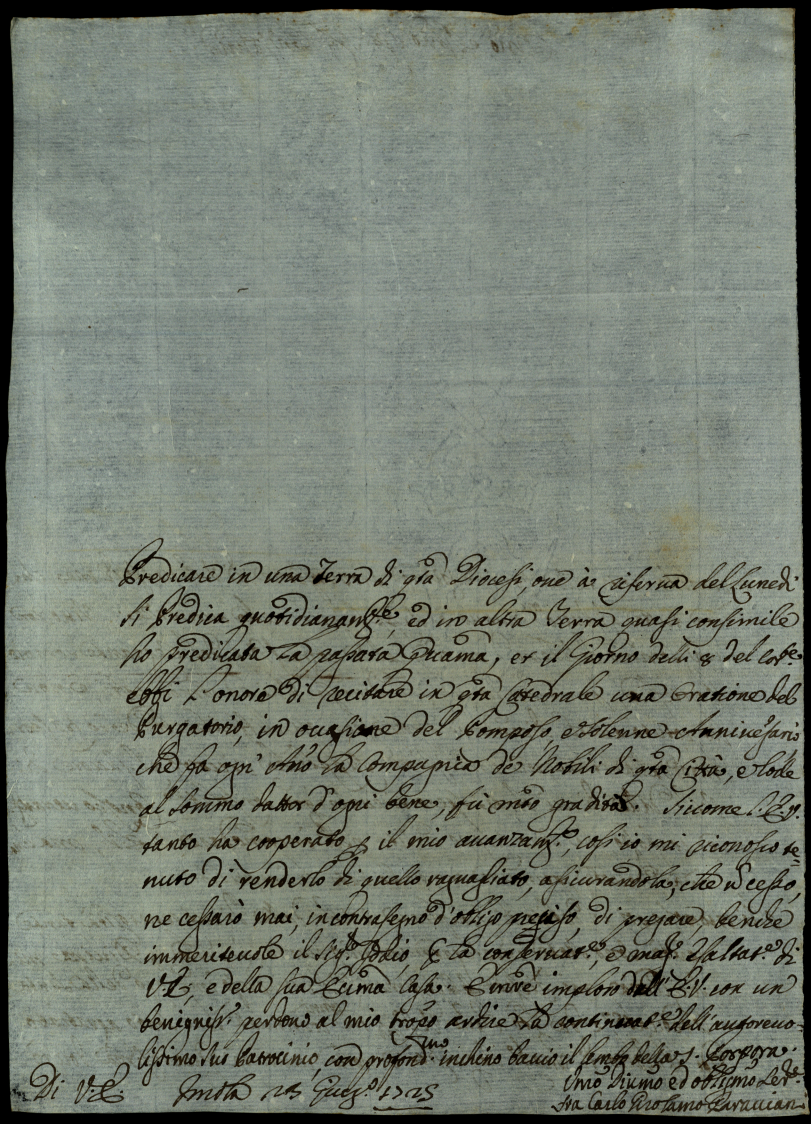 Predicare in una Terra di q.ta Diocesi, oue à riserua del Lunedi
si Predica quotidianam.te, ed in altra Terra quasi consimile
ho predicata la passata Quãma, et il Giorno delli 8 del cor.te
ebbi l'onore di recitare in q.ta Catedrale una Oratione del
Purgatorio, in occasione del Pomposo, e solenne Anniuersario
che fa ogn' Año la Compagnia de Nobili di q.ta Città, e lode
al sommo dattor d'ogni bene, fù mto gradita. Siccome l'E.V.
tanto ha cooperato p il mio auanzam.to, così io mi riconosco te-
nuto di renderlo di quello raguagliato, assicurandola, che nõ cesso,
ne cessarò mai, in contrasegno d'obligo preciso, di pregare, benche
immeriteuole il Sig.r Iddio p la conseruat.e, e mag.r esaltat.e di
V.E., e della sua Ecc.ma Casa. imploro dall'E.V. con un
benigniss.o perdono al mio troppo ardire la continuat.e dell'autoreuo-
lissimo suo Patrocinio, con profond.mo inchino baccio il lembo della S. Porpora.
Di V.E. Imola 23 1725 Vmo Diumo ed oblmo Ser.e
Fra Carlo Girolamo